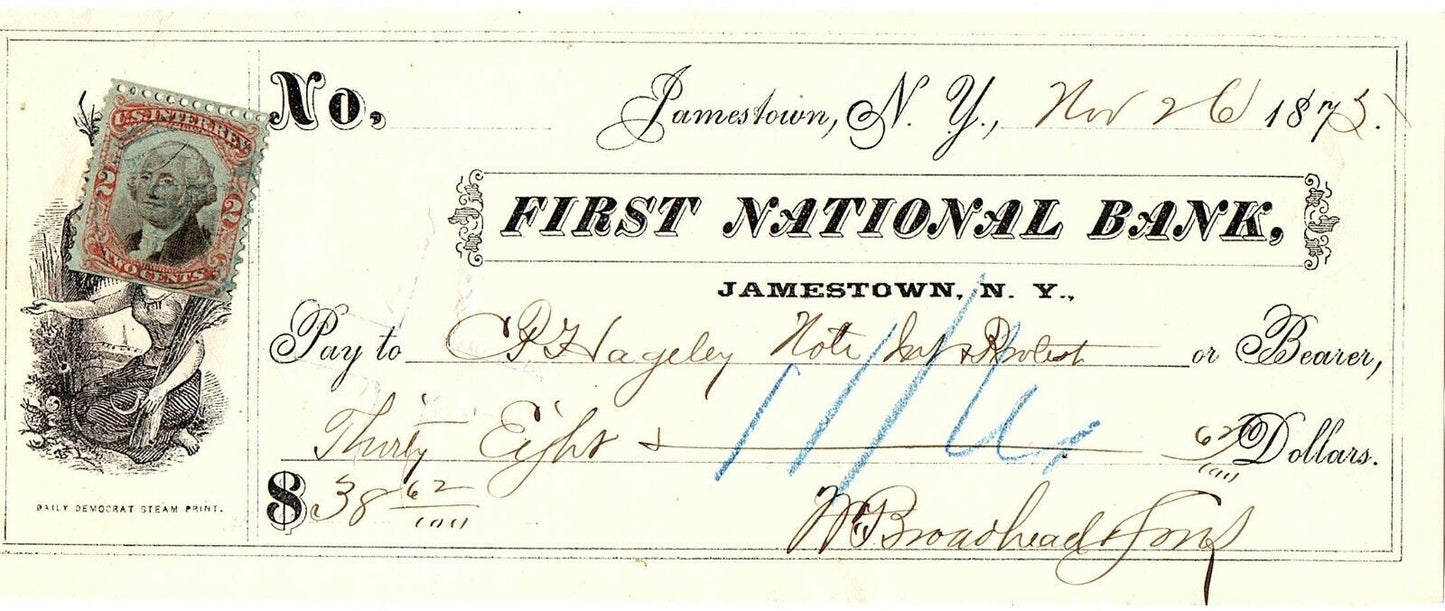 U.S. INTER. REV.
2 2
TWO CENTS
No.
Jamestown, N. Y., Nov 26 1875.
FIRST NATIONAL BANK,
JAMESTOWN, N. Y.,
Pay to C P Hageley Note Int & Protest or Bearer,
Thirty Eight & 62/100 Dollars.
$ 38 62/100
W Broadhead & Sons
DAILY DEMOCRAT STEAM PRINT.